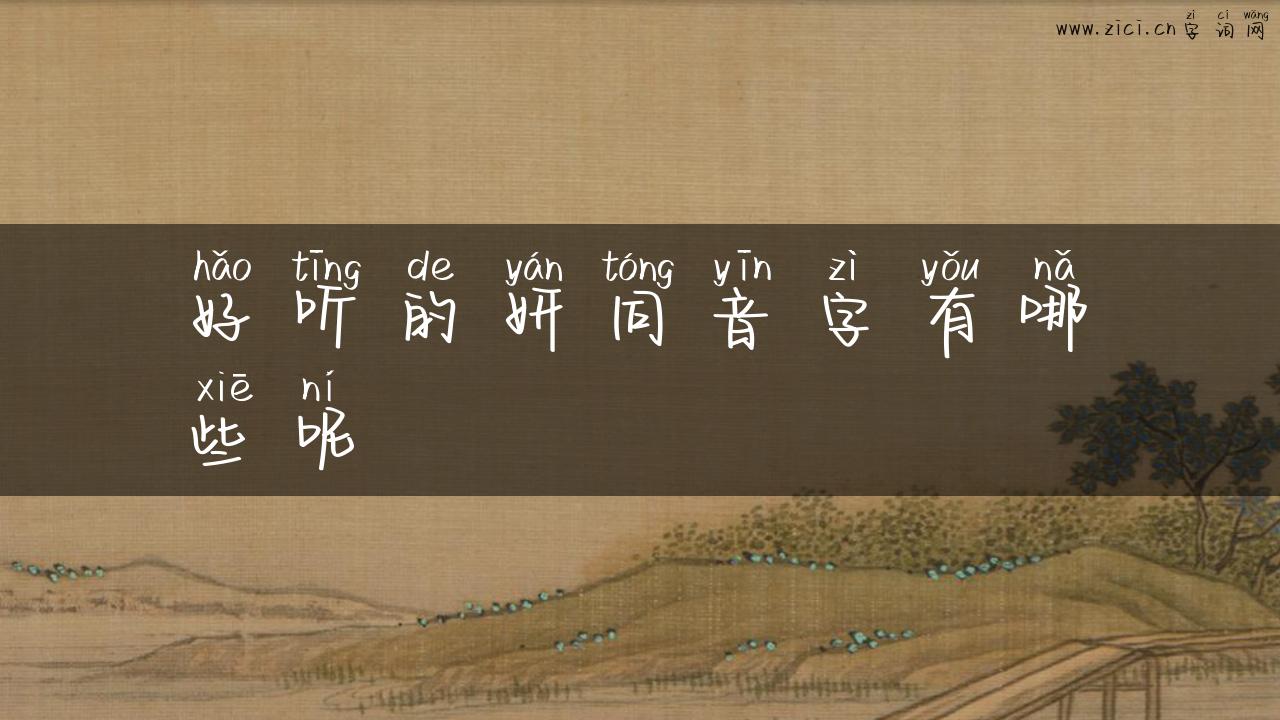 zì cí wǎng
www.zici.cn字词网
hǎo tīng de yán tóng yīn zì yǒu nǎ
好听的妍同音字有哪
xiē ní
些呢